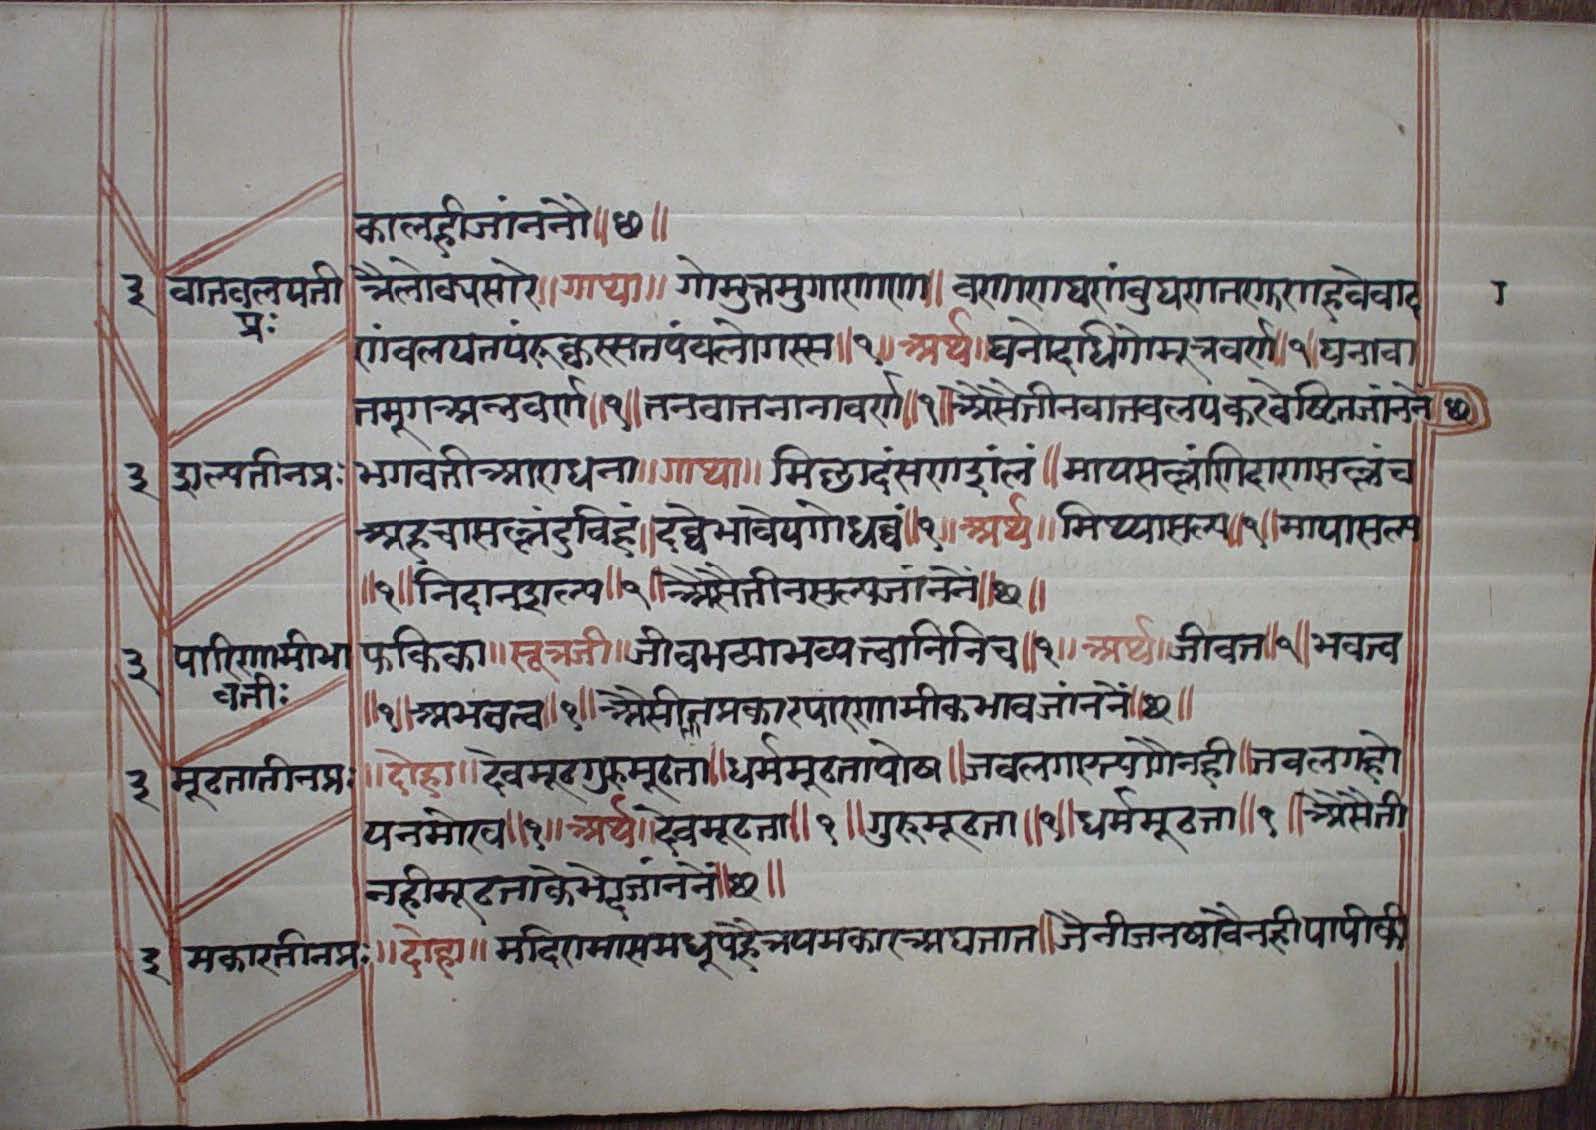 कालहीजांननौ॥छ॥
३ वातवलयती त्रैलोक्यसारे॥गाथा॥ गोमुत्तमुगाराणाणा॥ वराणराघरांवुघरातराफराहवेवाद
प्रः रांवलयतपंरुकस्सतपंवलोगस्स॥१॥अर्थ॥घनोदधिगोमूत्रवर्ण॥१॥घनावा
तमूगअन्नवर्ण॥१॥तनवातनानावर्ण॥१॥अैसैतीनवातवलयकरवेष्टितजांननें॥छ॥
३ शल्यतीनप्रः भगवतीआराधना॥गाथा॥ मिछादंसराशलं॥मायसल्लंणिदारासल्लंच
अहचासल्लंदुविहं॥दव्वेभावेयगोधव्वं॥१॥अर्थ॥मिथ्यासल्य॥१॥मायासल्य
॥१॥निदानशल्य॥१॥अैसैतीनसल्यजांननें॥छ॥
३ पारिणामीभा फकिका॥सूत्रजी॥जीवभव्याभव्यत्वानिनिच॥१॥अर्थ॥जीवत॥१॥भवत्व
वतीः ॥१॥अभवत्व॥१॥अैसैतीनप्रकारपारणामीकभावजांननें॥छ॥
३ मूढतातीनप्रः ॥दोहा॥देवमूढगुरुमूढता॥धर्ममूढतापोष॥जवलगएत्यागैनही॥जवलगहो
यनमोख॥१॥अर्थ॥देवमूढता॥१॥गुरुमूढता॥१॥धर्ममूढता॥१॥अैसैती
नहीमूढताकेभेदजांननें॥छ॥
३ मकारतीनप्रः ॥दोहा॥मदिरामासमधूपहैत्रयमकारअघतात॥जैनीजनषावैनहीपापीकी